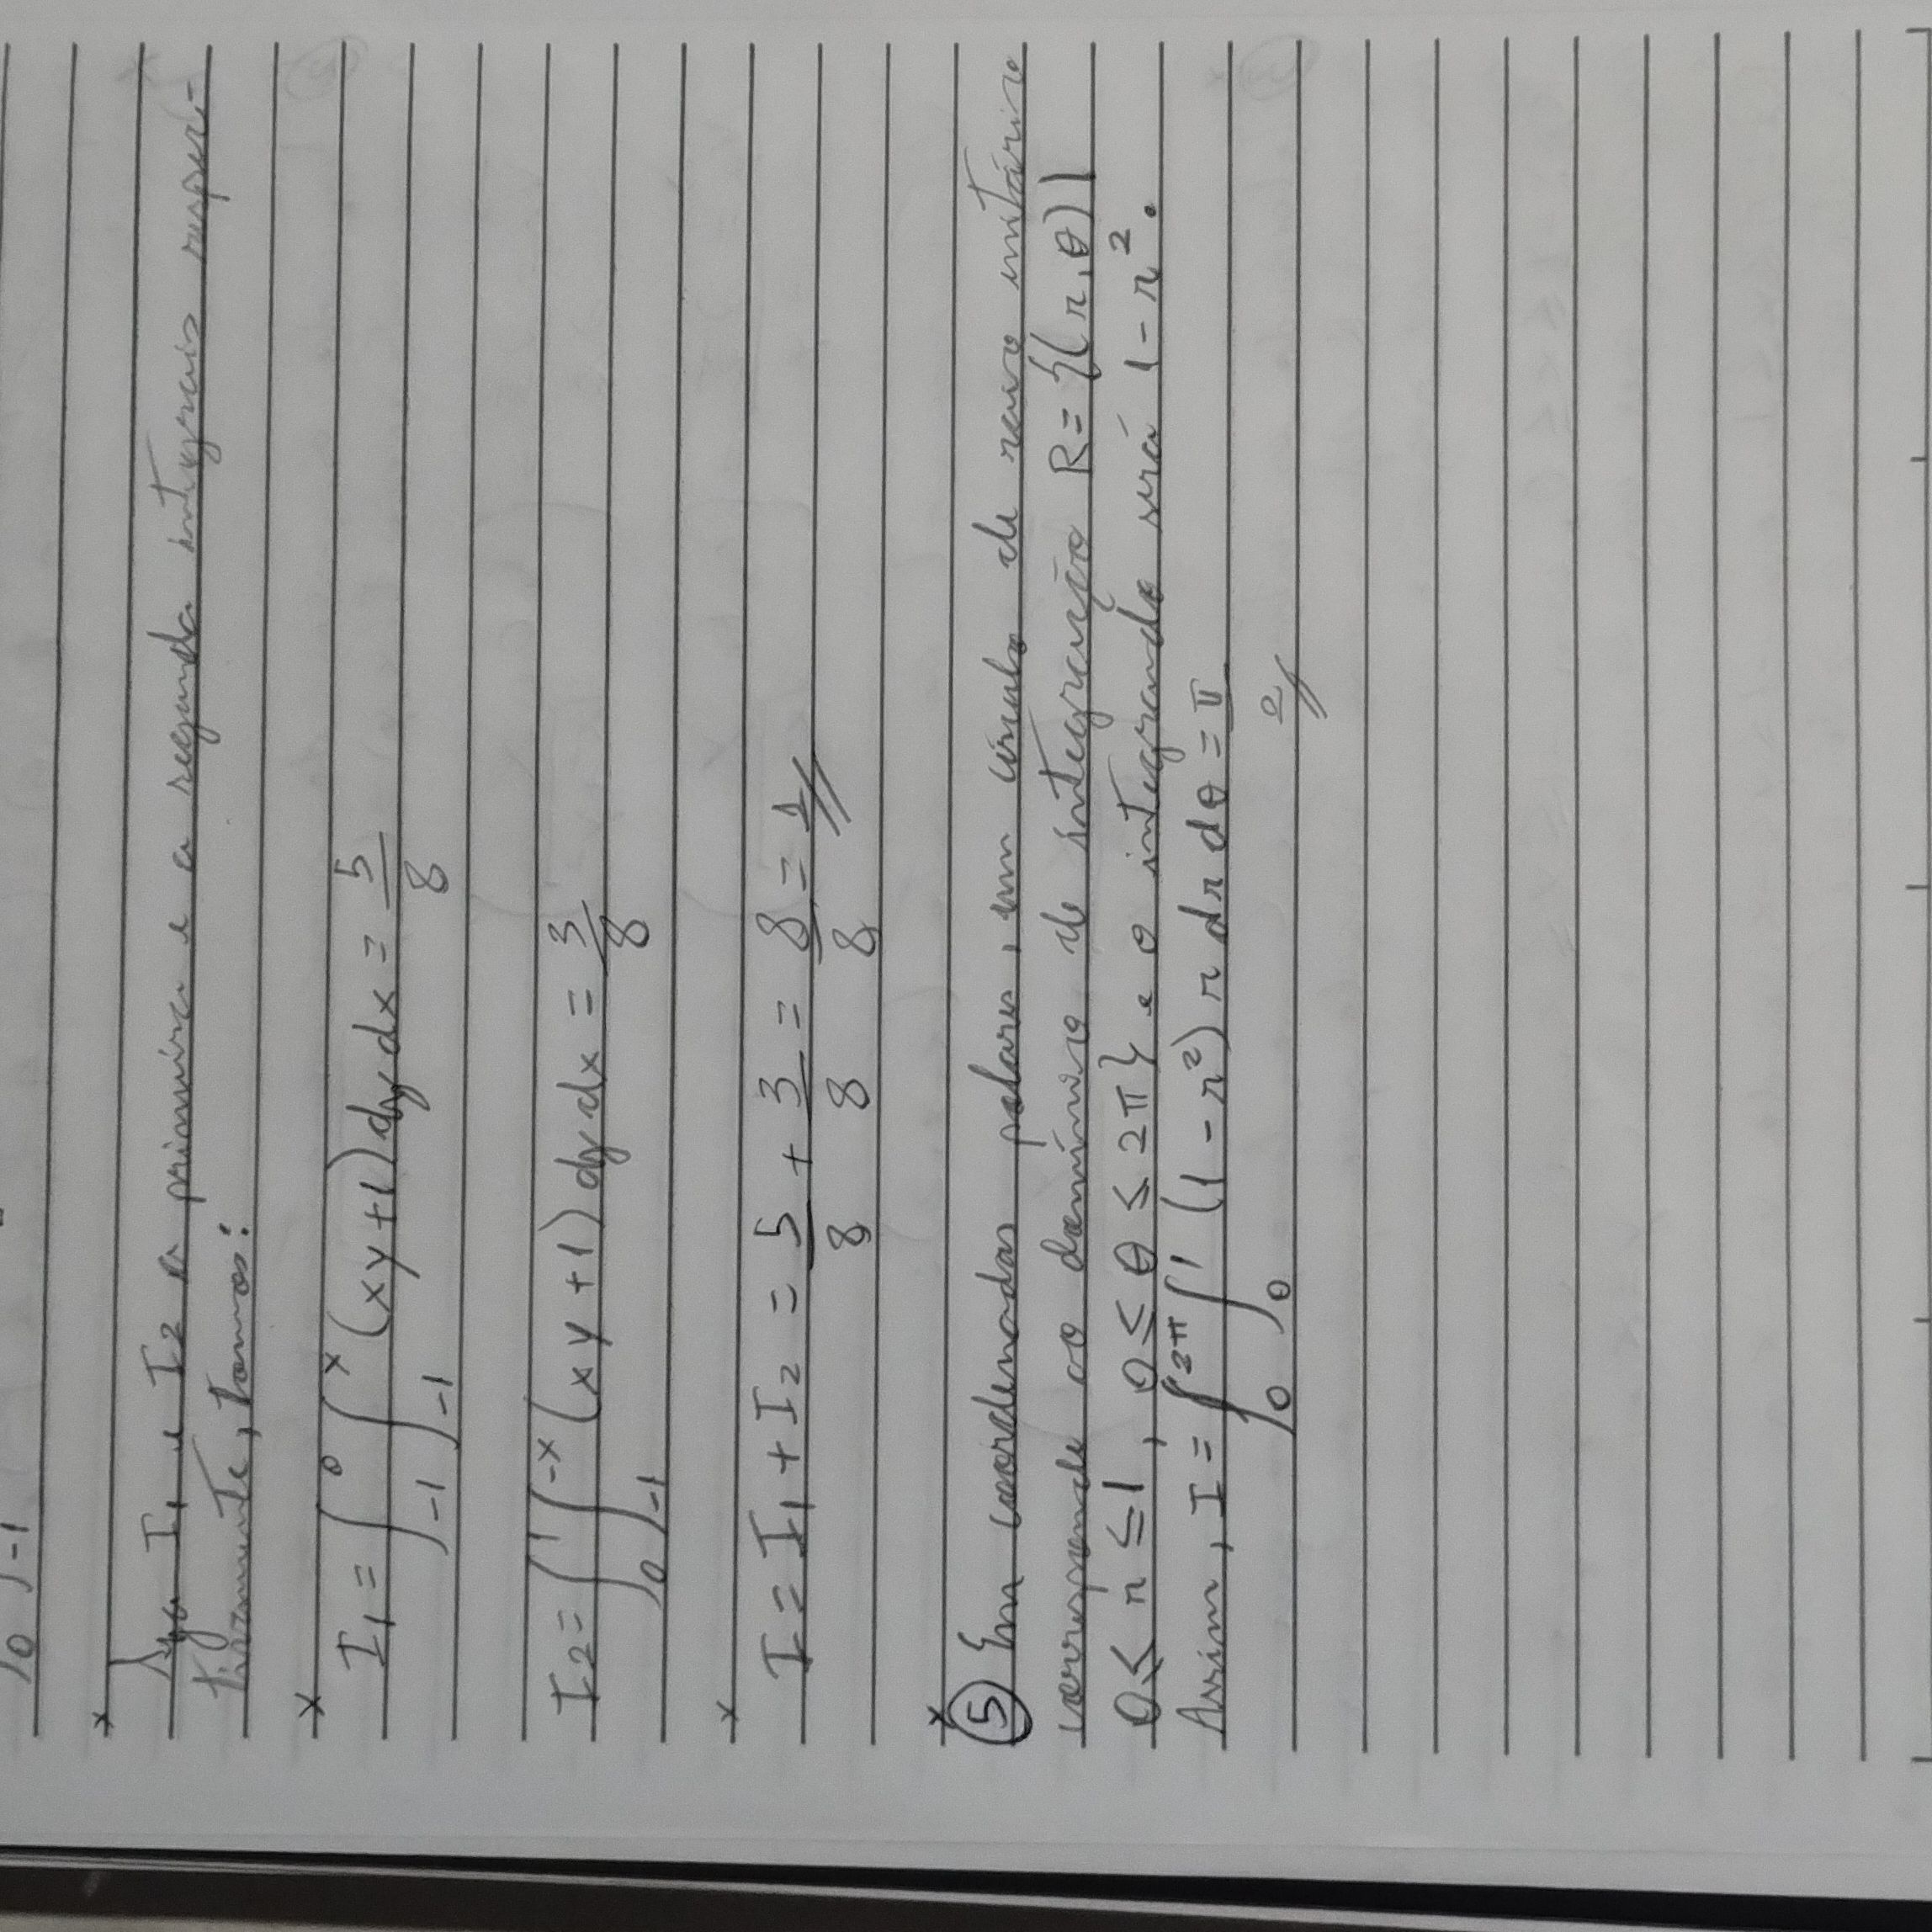 0 -1
Seja I₁ e I₂ a primeira e a segunda integrais respec-
tivamente, temos:
I₁ = ∫₋₁⁰ ∫₋₁ˣ (xy+1)dydx = 5/8
I₂ = ∫₀¹ ∫₋₁⁻ˣ (xy+1)dydx = 3/8
I = I₁ + I₂ = 5/8 + 3/8 = 8/8 = 1//
⑤ Em coordenadas polares, um círculo de raio unitário
corresponde ao domínio de integração R={(r,θ)|
0≤ r ≤1, 0≤ θ ≤ 2π} e o integrando será 1-r².
Assim, I = ∫₀²π ∫₀¹ (1-r²) r dr dθ = π/2//